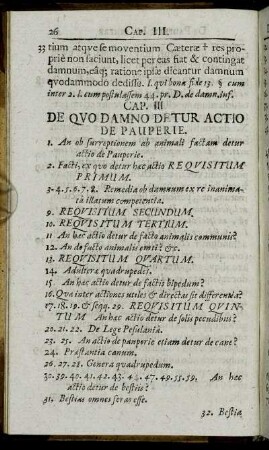 26 CAP. III.
33 tium atqve se moventium Cæteræ † res pro-
priè non faciunt, licet per eas fiat & contingat
damnum, eâq; ratione ipsæ dicantur damnum
qvodammodo dedisse. l. qui bonæ fidei 13. § cum
inter 2. l. cum postulassem 44. pr. D. de damn. inf.
CAP. III
DE QVO DAMNO DETUR ACTIO
DE PAUPERIE.
1. An ob surreptionem ab animali factam detur
actio de Pauperie.
2. Facti, ex quo detur hæc actio REQVISITUM
PRIMUM.
3-4. 5. 6. 7. 8. Remedia ob damnum ex re inanima-
tâ illatum competentia.
9. REQVISITUM SECUNDUM.
10. REQVISITUM TERTIUM.
11. An hæc actio detur de facto animalis communis?
12. An de facto animalis emti? &c.
13. REQVISITUM QVARTUM.
14. Adulteræ quadrupedes.
15 An hæc actio detur de factis bipedum?
16. Qva inter actiones utiles & directas sit differentia?
17. 18. 19. & seqq. 29. REQVISITUM QVIN-
TUM An hæc actio detur de solis pecudibus?
20. 21. 22. De Lege Pesulaniâ.
23. 25. An actio de pauperie etiam detur de cane?
24. Præstantia canum.
26. 27. 28. Genera quadrupedum.
30. 39. 40. 41. 42. 43. 44. 47. 49. 55. 59. An hæc
actio detur de bestiis?
31. Bestias omnes feras esse.
32. Bestia